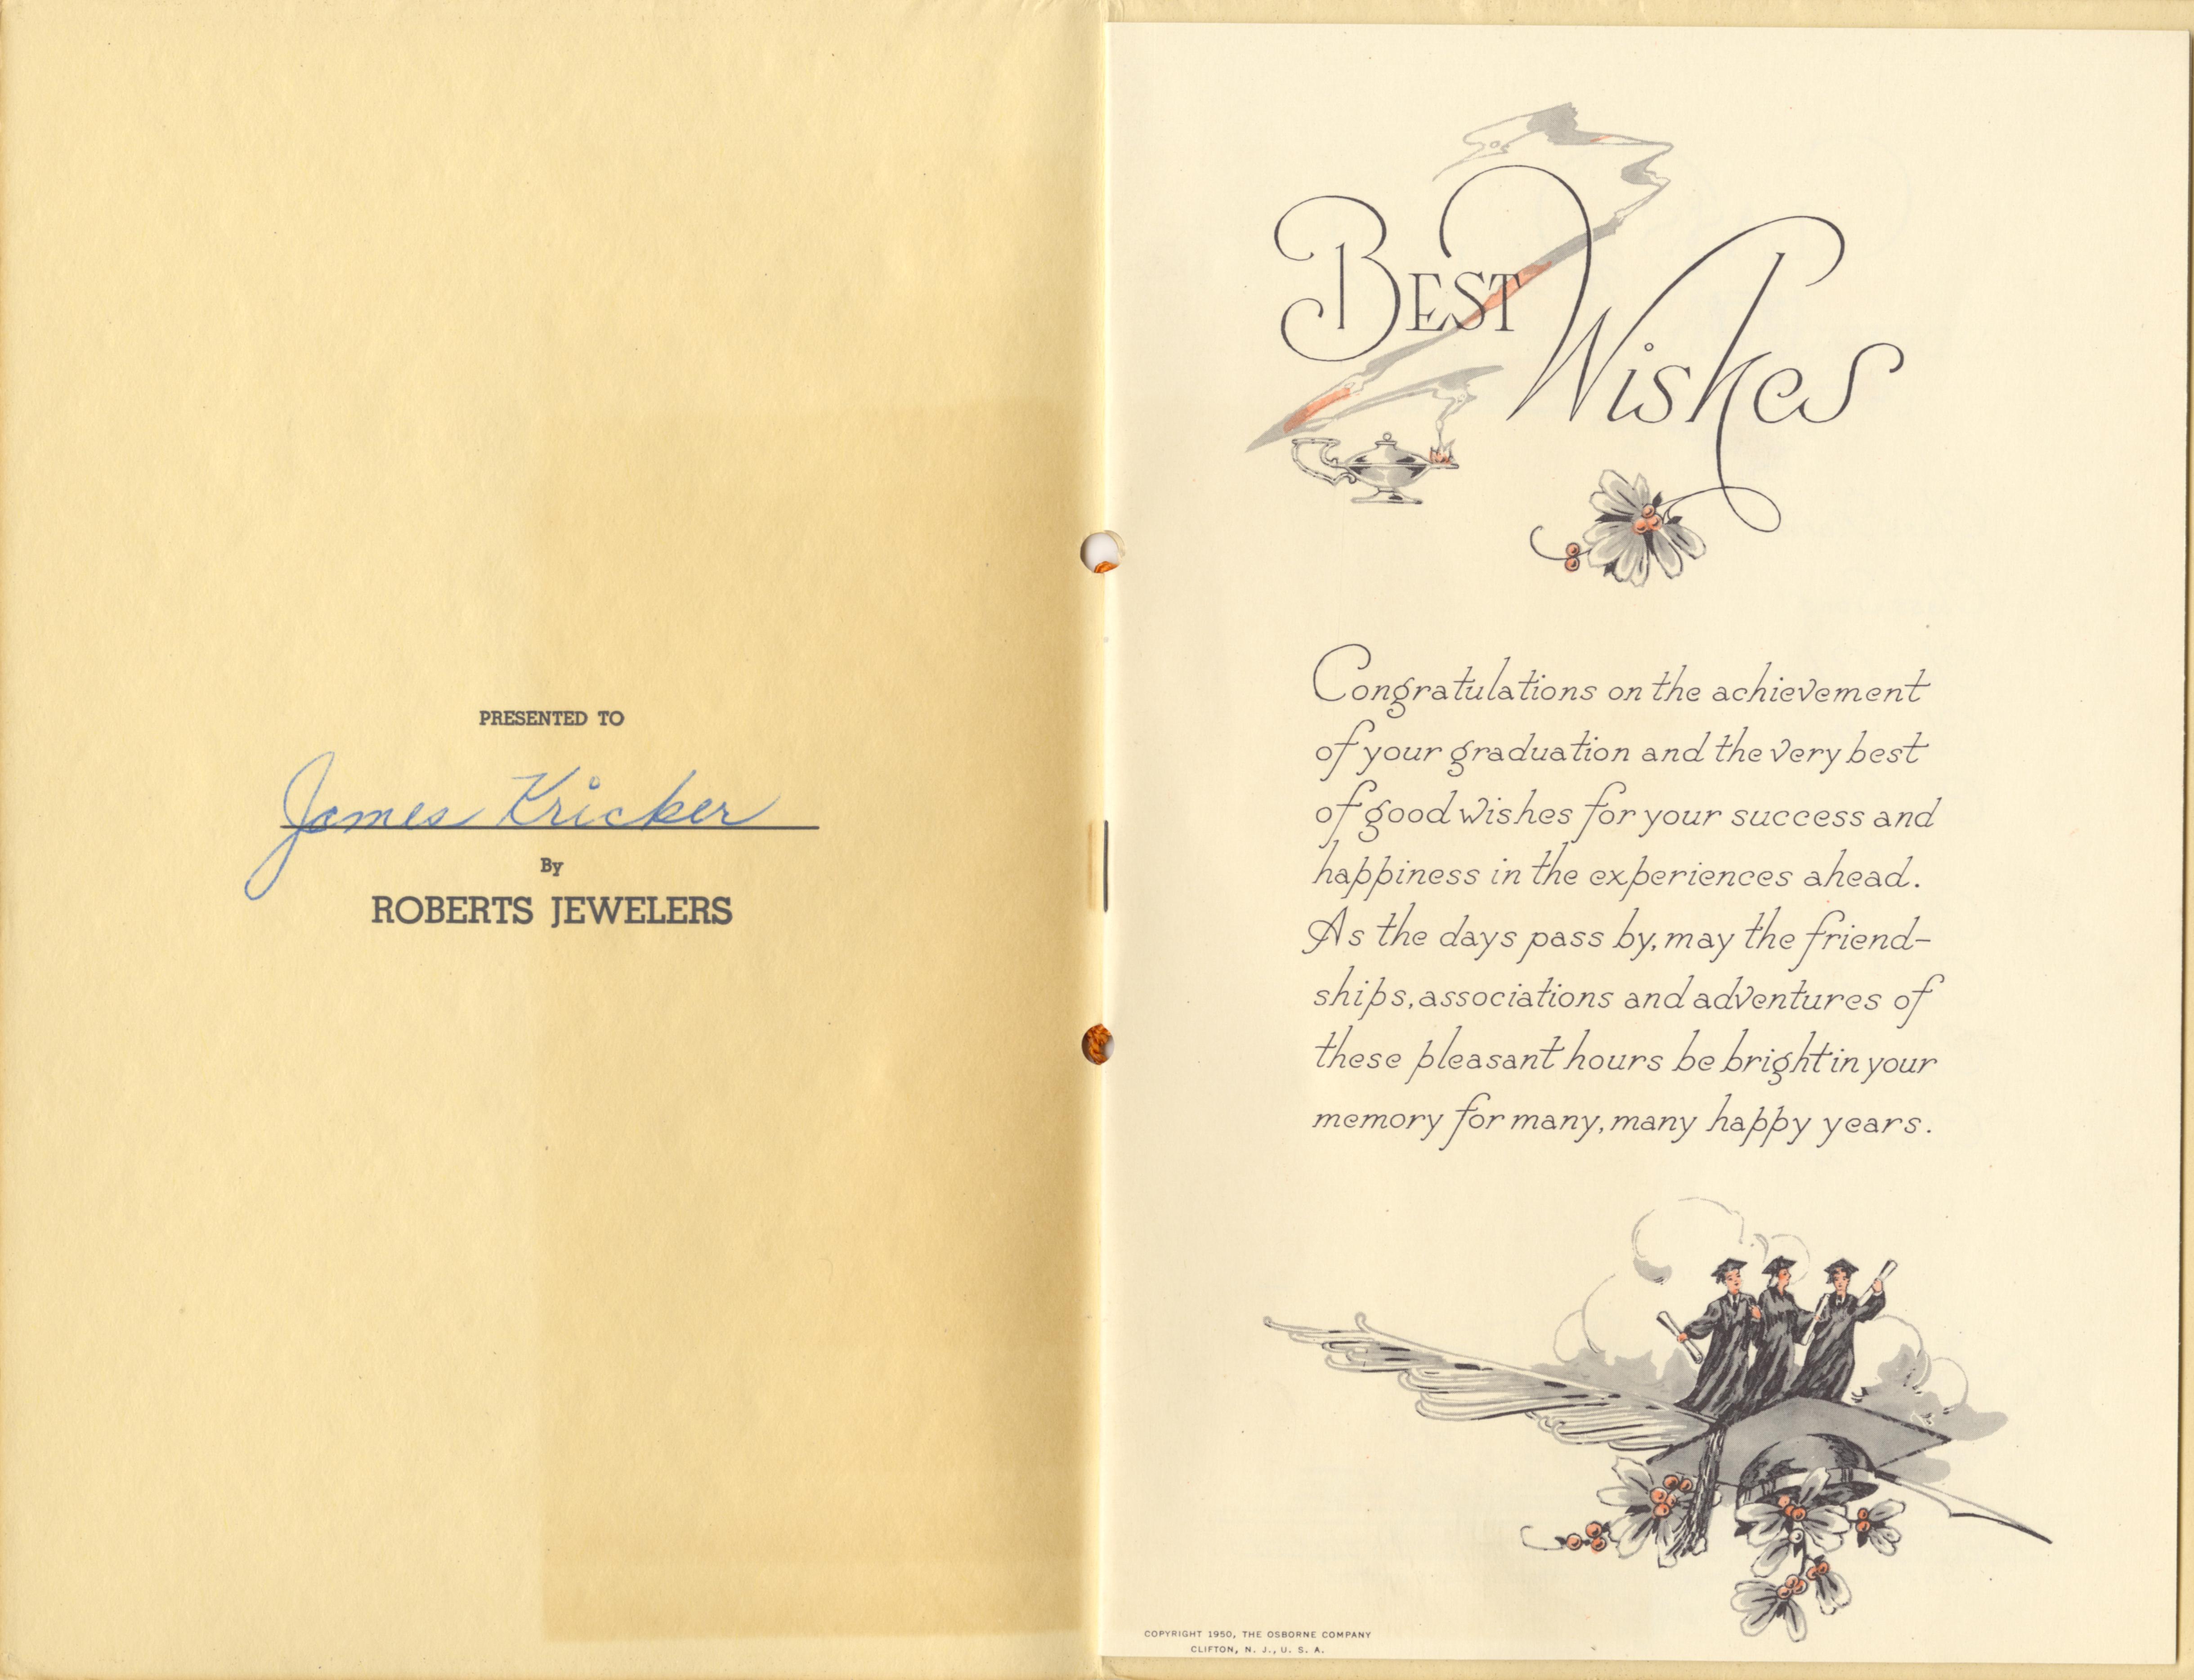 PRESENTED TO
James Kricker
By
ROBERTS JEWELERS
BEST
Wishes
Congratulations on the achievement
of your graduation and the very best
of good wishes for your success and
happiness in the experiences ahead.
As the days pass by, may the friend-
ships, associations and adventures of
these pleasant hours be bright in your
memory for many, many happy years.
COPYRIGHT 1950, THE OSBORNE COMPANY
CLIFTON, N. J., U. S. A.